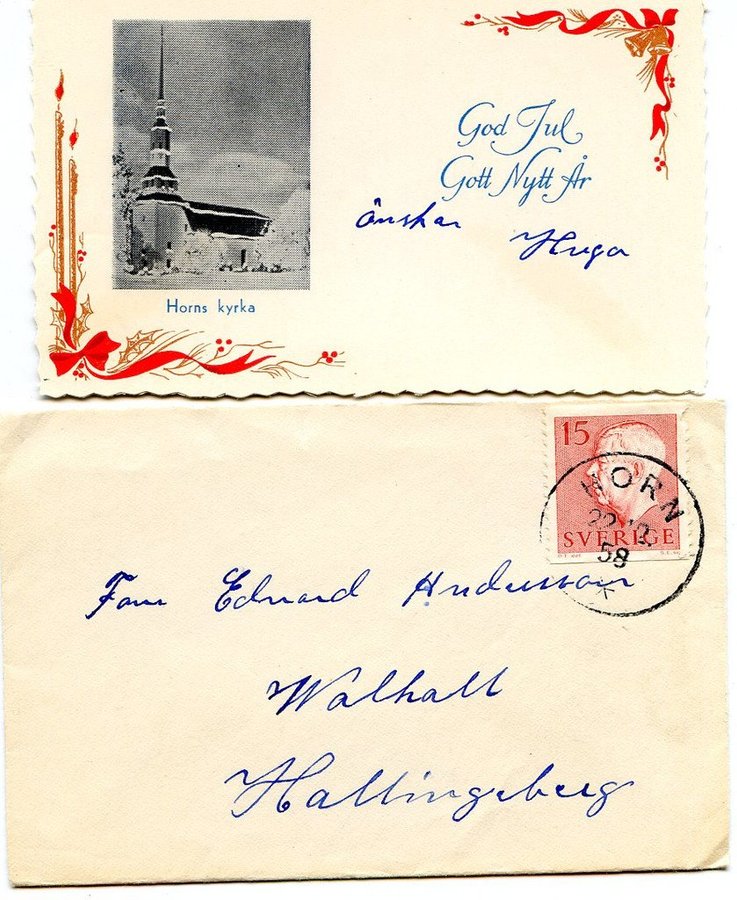 God Jul
Gott Nytt År
önskar Hugo
Horns kyrka
15
HORN
22.12.
58
SVERIGE
Fam Edvard Andersson
Walhall
Hallingeberg